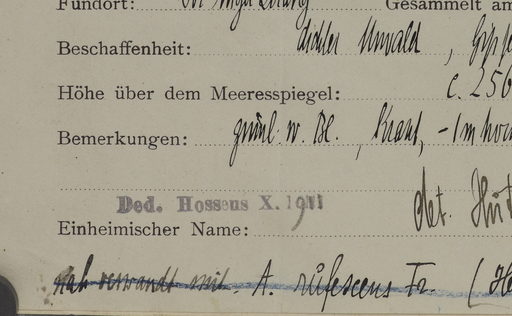 Fundort: Gesammelt am
Beschaffenheit: dichter Urwald,
Höhe über dem Meeresspiegel: c. 256
Bemerkungen: grünl. w. Bl., Kraut, - 1 m hoch
Ded. Hosseus X. 1911
det.
Einheimischer Name:
nah verwandt mit A. rufescens Tr. (H